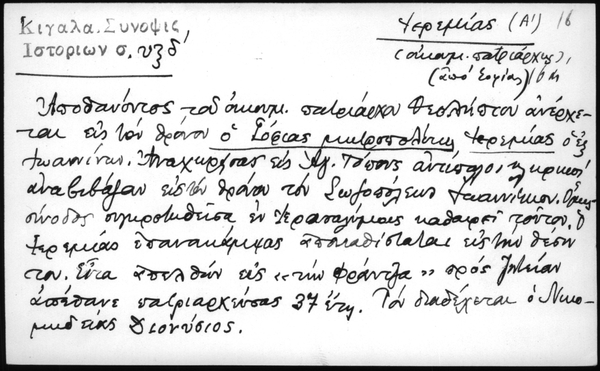 Κιγαλα. Συνοψις
Ιστοριων σ. υξδ'
Ἱερεμίας (Α') 16
(οἰκουμ. πατριάρχης),
(ἀπό Σοφίας)
Ἀποθανόντος τοῦ οἰκουμ. πατριάρχου Θεολήπτου ἀνέρχε-
ται εἰς τόν θρόνον ὁ Σόφιας μητροπολίτης Ἱερεμίας ὁ ἐξ
Ἰωαννίνων. Ἀναχωρήσας εἰς Ἁγ. Τόπους ἀντίπαλοι κληρικοί
ἀναβιβάζουν εἰς τόν θρόνον τόν Σωζοπόλεως Ἰωαννίκιον. Ὅμως
σύνοδος συγκροτηθεῖσα ἐν Ἱεροσολύμοις καθαιρεῖ τοῦτον. Ὁ
Ἱερεμίας ἐπανακάμψας ἀποκαθίσταται εἰς τήν θέσιν
του. Εἶτα ἀπελθών εἰς «τήν Φράντζα» πρός ζητείαν
ἀπέθανε πατριαρχεύσας 37 ἔτη. Τόν διαδέχεται ὁ Νικο-
μηδείας Διονύσιος.